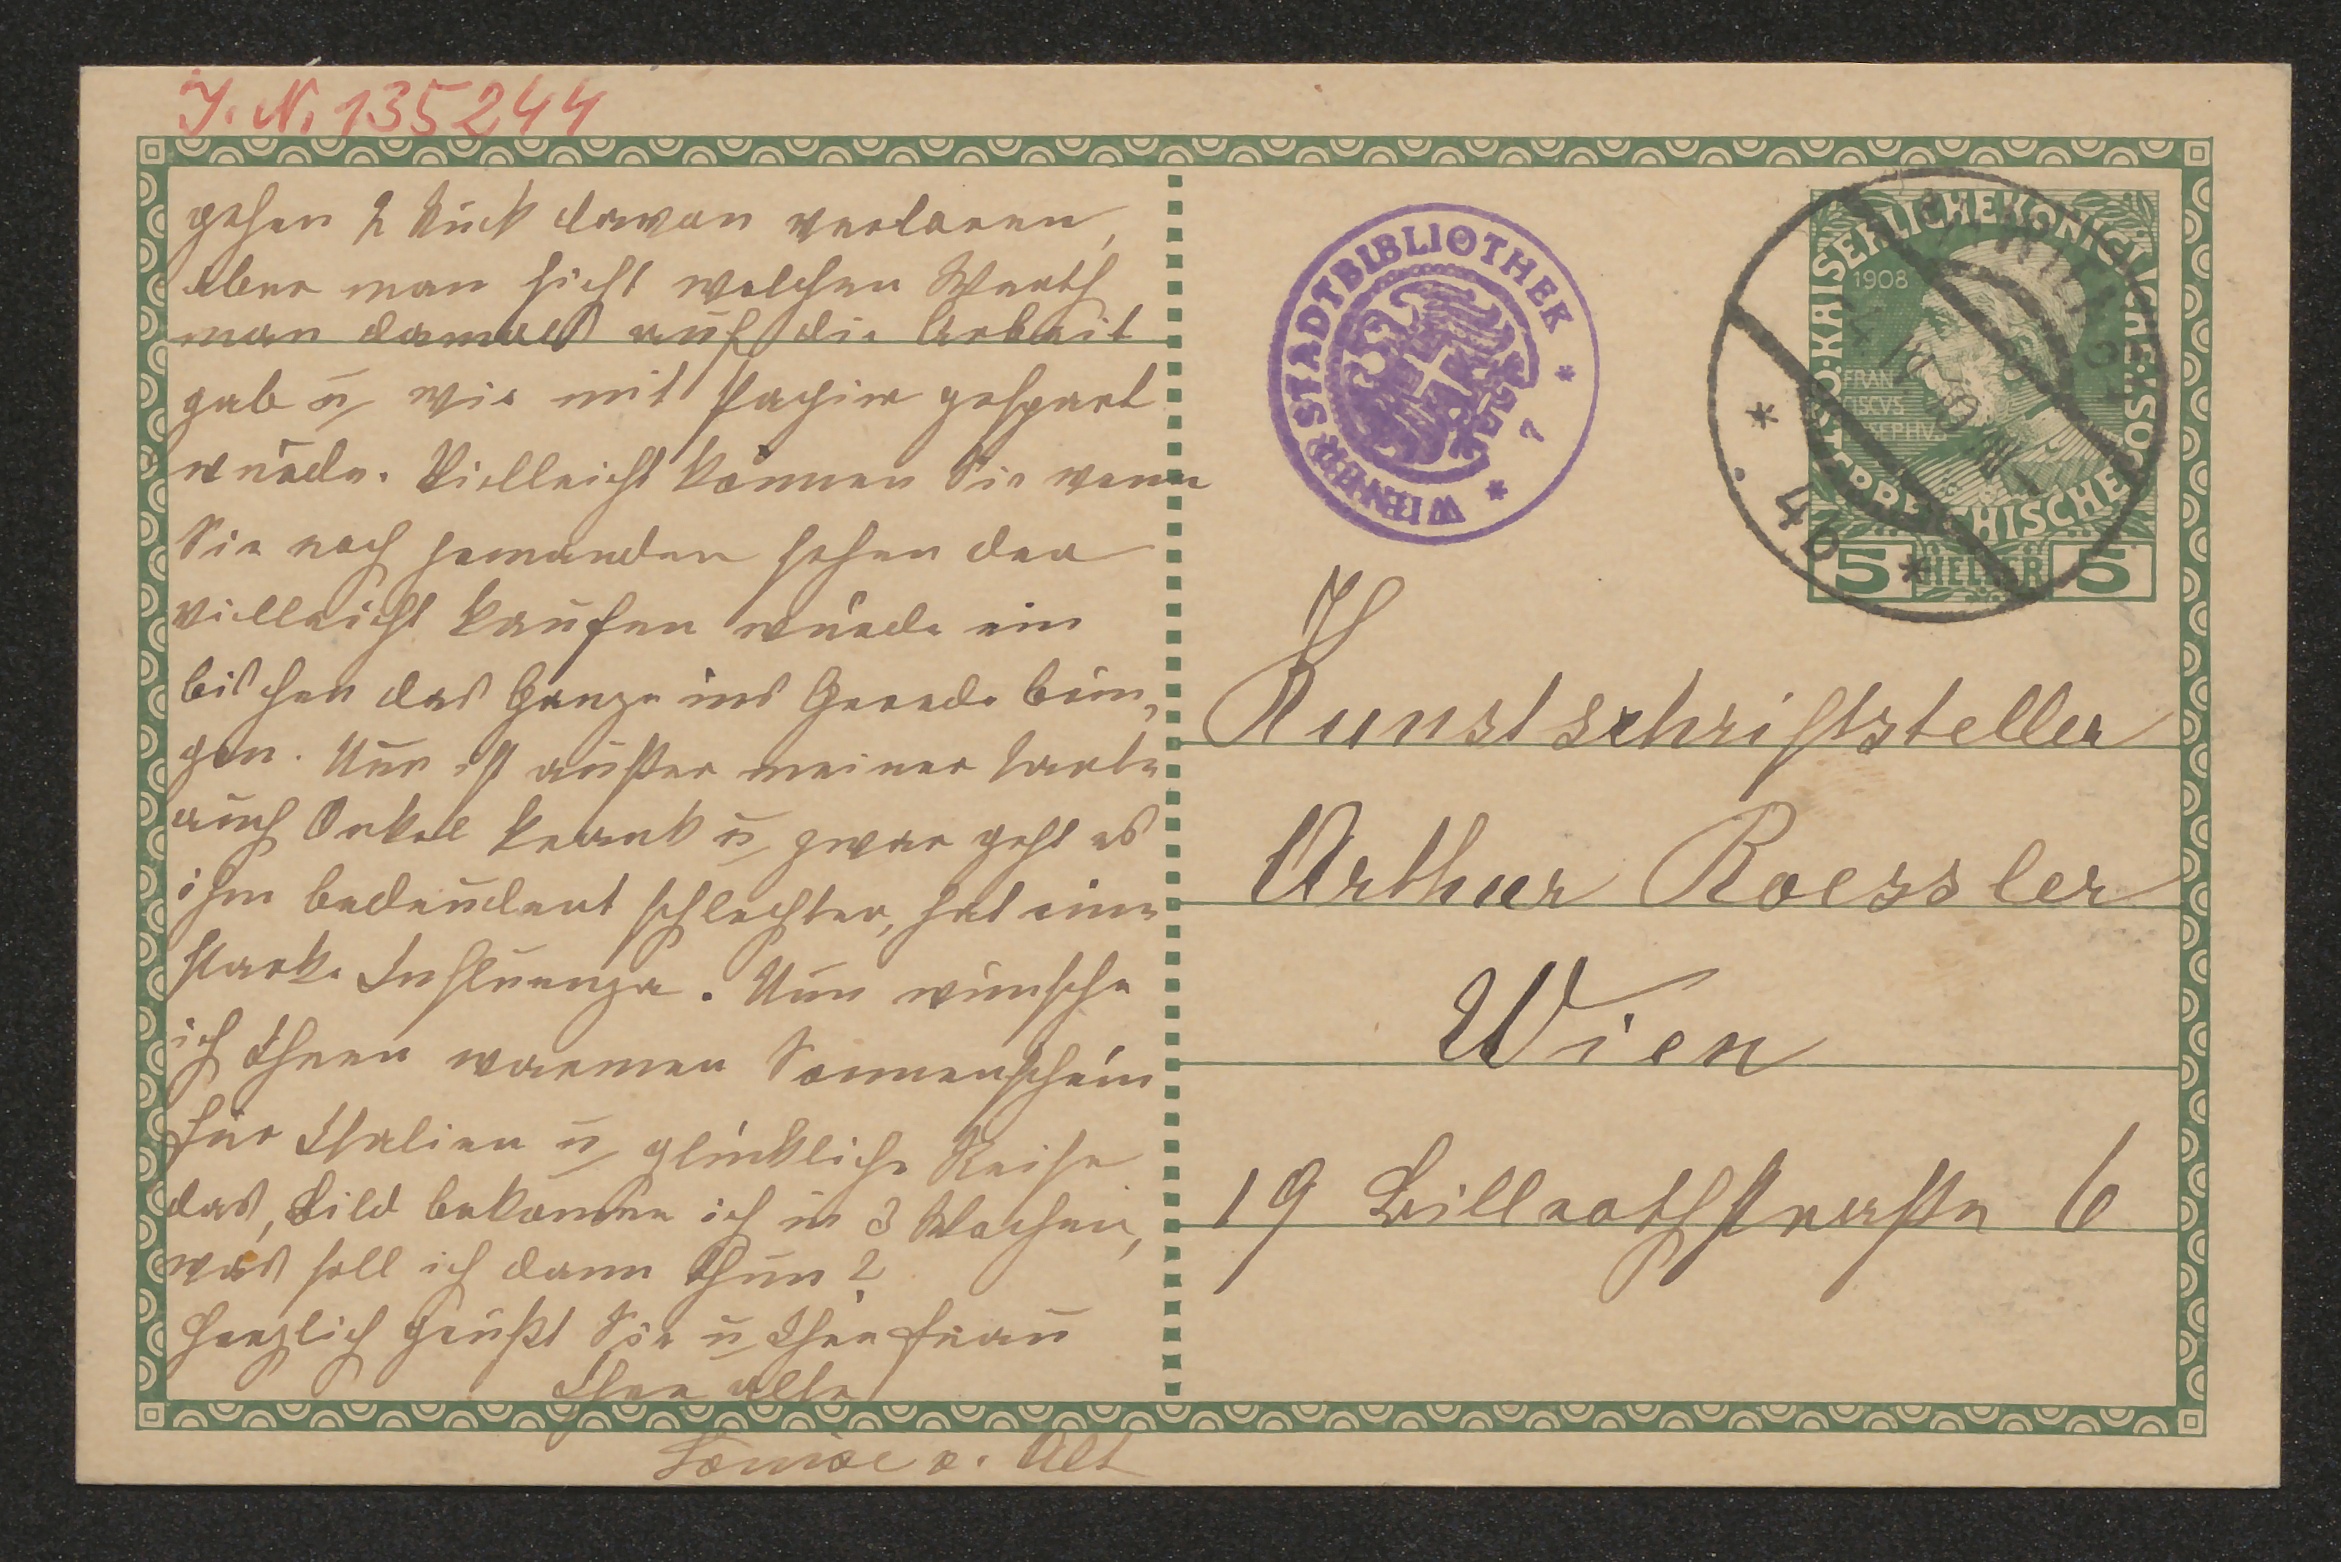 J. N. 135244
gehen 2 Stück davon verloren,
aber man sieht welchen Werth
man damals auf die Arbeit
gab u wie mit Papier gespart
würde. Vielleicht können Sie wenn
Sie noch jemanden sehen der
vielleicht kaufen würde ein
bischen das Ganze ins Gerede brin-
gen. Nun ist außer meiner Tante
auch Onkel krank u zwar geht es
ihm bedeudent schlechter, hat eine
starke Influenza. Nun wünsche
ich Ihnen warmen Sonnenschein
für Ithalien u glückliche Reise
das Bild bekomme ich in 3 Wochen,
was soll ich dann thun?
Herzlich grüßt Sie u Ihre Frau
Ihre alte
Louise v. Alt
WIENER STADTBIBLIOTHEK
* 7 *
KAISERLICHE KÖNIGLICHE
ÖSTERREICHISCHE
1908
FRAN
CISCVS
5 HELLER 5
* 4b *
H
Kunstschriftsteller
Arthur Roessler
Wien
19 Billrothstraße 6